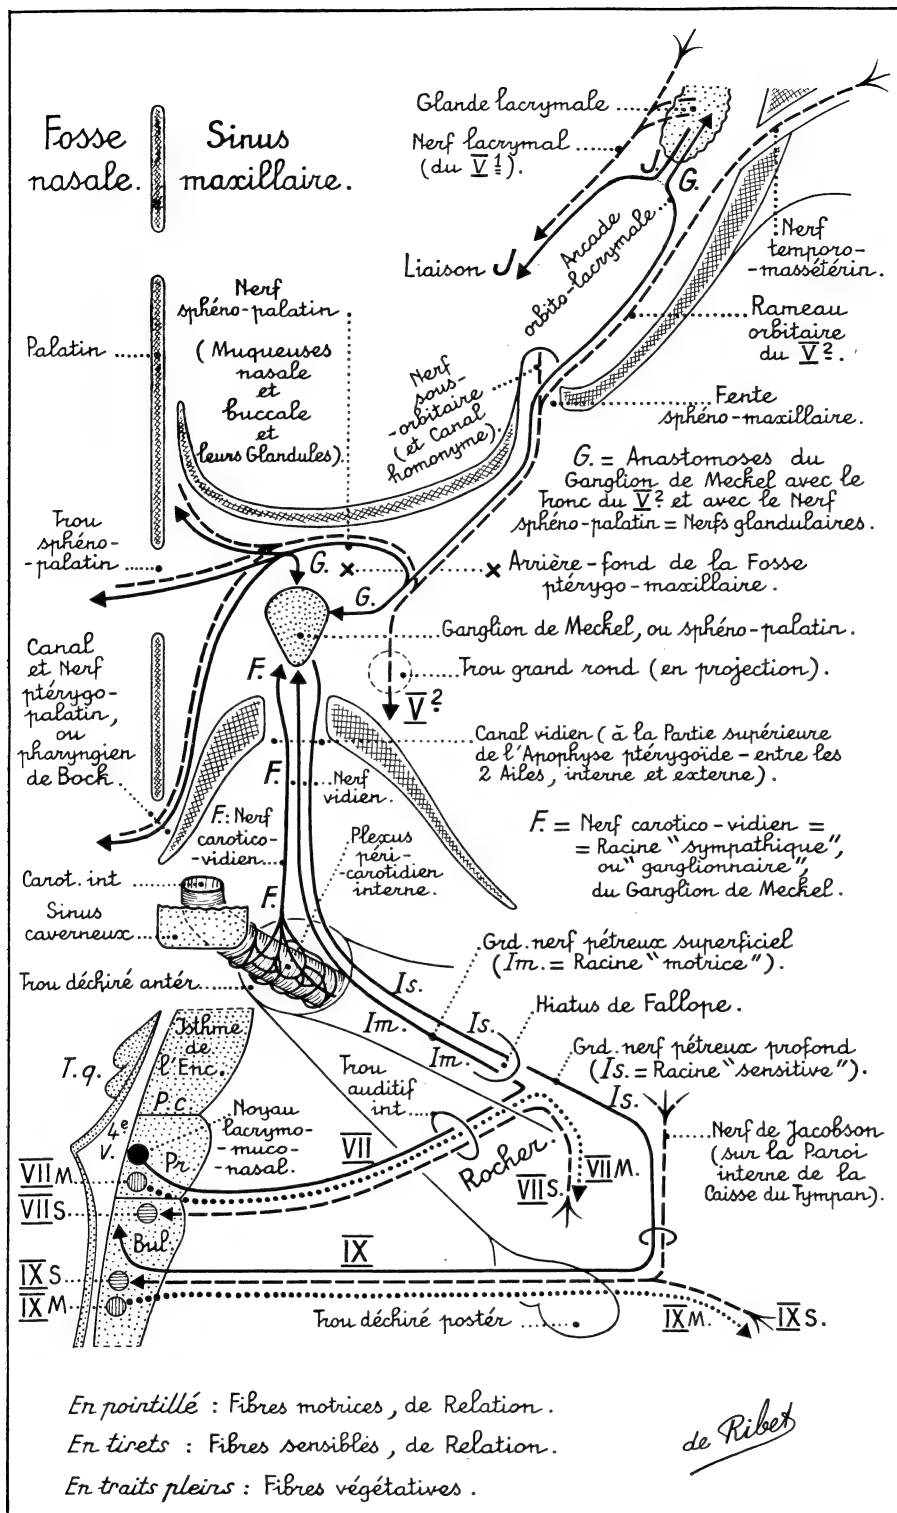 Fosse
nasale.
Sinus
maxillaire.
Glande lacrymale
Nerf lacrymal
(du V1).
J.
G.
Liaison J
Arcade
orbito-lacrymale
Nerf
temporo-
-massétérin.
Rameau
orbitaire
du V2.
Fente
sphéno-maxillaire.
Nerf
sphéno-palatin
(Muqueuses
nasale
et
buccale
et
leurs Glandules).
Palatin
Nerf
sous-
-orbitaire
(et Canal
homonyme).
G. = Anastomoses du
Ganglion de Meckel avec le
Tronc du V2 et avec le Nerf
sphéno-palatin = Nerfs glandulaires.
Trou
sphéno-
-palatin
G.
× × Arrière-fond de la Fosse
ptérygo-maxillaire.
G.
Ganglion de Meckel, ou sphéno-palatin.
Trou grand rond (en projection).
V2
Canal
et Nerf
ptérygo-
palatin,
ou
pharyngien
de Bock.
F.
Canal vidien (à la Partie supérieure
de l'Apophyse ptérygoïde - entre les
2 Ailes, interne et externe).
F.
Nerf
vidien.
F.: Nerf
carotico-
-vidien
Plexus
péri-
-carotidien
interne.
F. = Nerf carotico-vidien =
= Racine "sympathique",
ou "ganglionnaire",
du Ganglion de Meckel.
F.
Carot. int
Sinus
caverneux
Trou déchiré antér.
Grd. nerf pétreux superficiel
(Im. = Racine "motrice").
Is.
Im.
Is.
Im.
Hiatus de Fallope.
Grd. nerf pétreux profond
(Is. = Racine "sensitive").
Is.
Isthme
de
l'Enc.
T.q.
P.c.
4e
V.
Pr.
Noyau
lacrymo-
-muco-
-nasal.
Trou
auditif
int
VII
Rocher.
VII S.
VII M.
Nerf de Jacobson
(sur la Paroi
interne de la
Caisse du Tympan).
VII M
VII S
Bul.
IX
IX S
IX M
Trou déchiré postér
IX M.
IX S.
En pointillé : Fibres motrices, de Relation.
En tirets : Fibres sensibles, de Relation.
En traits pleins : Fibres végétatives.
de Ribet